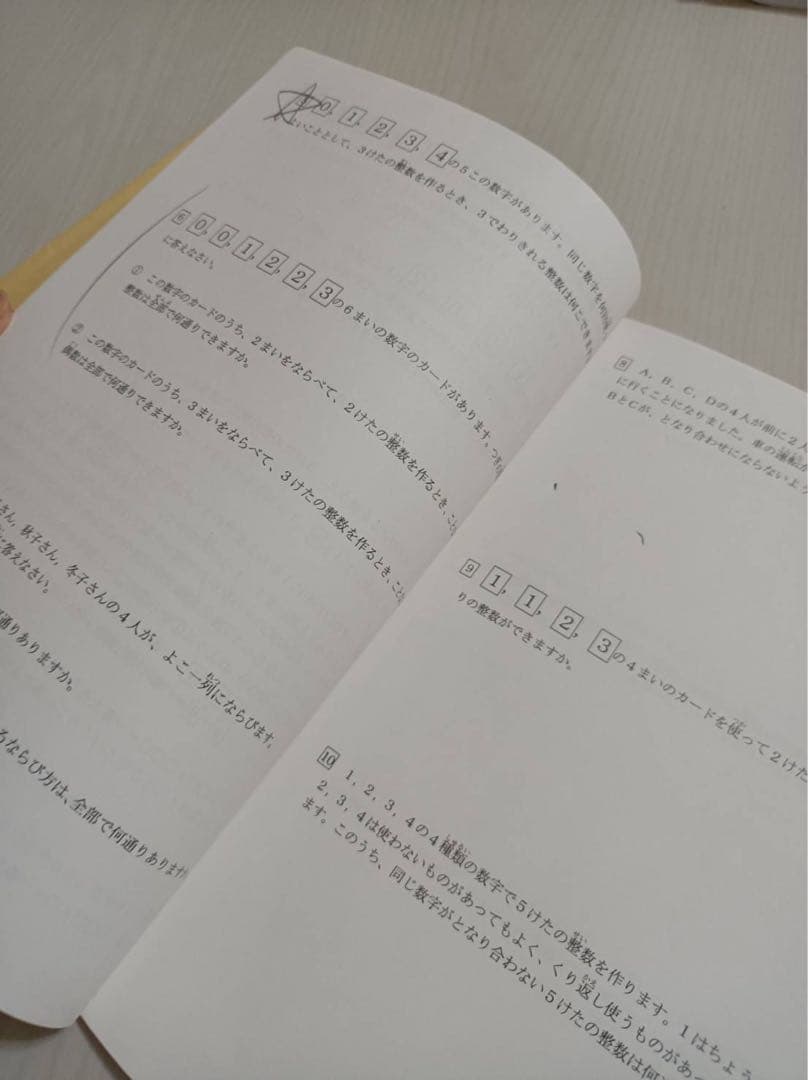 0, 1, 2, 3, 4の5この数字があります。同じ数字を何回
よいこととして、3けたの整数を作るとき、3でわりきれる整数は何こできま
6 0, 0, 1, 2, 2, 3の6まいの数字のカードがあります。つぎの
に答えなさい。
① この数字のカードのうち、2まいをならべて、2けたの整数を作るとき、こと
整数は全部で何通りできますか。
② この数字のカードのうち、3まいをならべて、3けたの整数を作るとき、こと
偶数は全部で何通りできますか。
さん，秋子さん，冬子さんの4人が、よこ一列にならびます。
答えなさい。
通りありますか。
るならび方は、全部で何通りあります
8 A，B，C，Dの4人が前に2人
に行くことになりました。車の運転が
BとCが、となり合わせにならないよう
9 1, 1, 2, 3の4まいのカードを使って2けた
りの整数ができますか。
10 1，2，3，4の4種類の数字で5けたの整数を作ります。1はちょう
2，3，4は使わないものがあってもよく、くり返し使うものがあっ
ます。このうち、同じ数字がとなり合わない5けたの整数は何